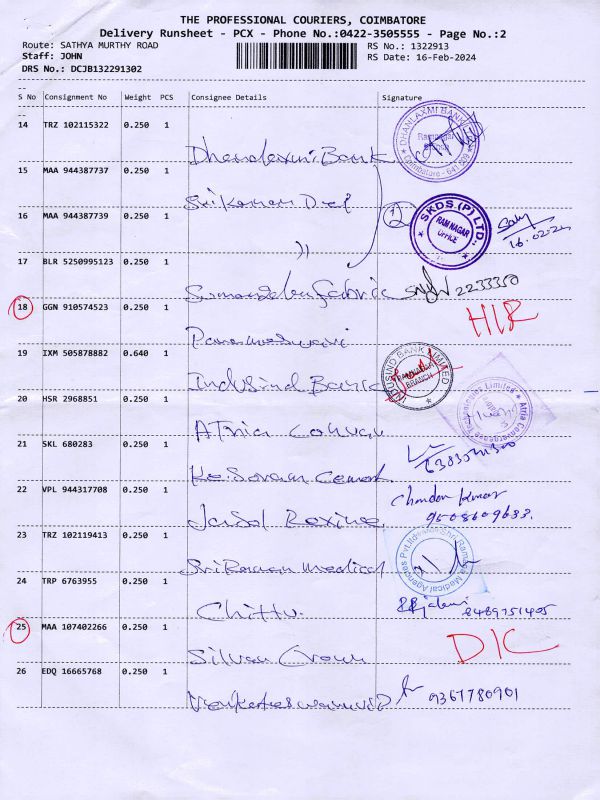 THE PROFESSIONAL COURIERS, COIMBATORE
Delivery Runsheet - PCX - Phone No.:0422-3505555 - Page No.:2
Route: SATHYA MURTHY ROAD RS No.: 1322913
Staff: JOHN RS Date: 16-Feb-2024
DRS No.: DCJB132291302
S No Consignment No Weight PCS Consignee Details Signature
14 TRZ 102115322 0.250 1
DHANLAXMI BANK
Ramnagar
Branch
Coimbatore - 641 009
Dhanalaxmi Bank
15 MAA 944387737 0.250 1
Sri Kannan Dep
16 MAA 944387739 0.250 1
1
SKDS (P) LTD.,
RAM NAGAR
OFFICE
16.02.24
)1
17 BLR 5250995123 0.250 1
2233350
18 GGN 910574523 0.250 1
HLR
Parameswari
19 IXM 505878882 0.640 1
INDUSIND BANK LIMITED
RAMNAGAR
BRANCH
IndusInd Bank
20 HSR 2968851 0.250 1
Atria Convergence Technologies Limited
Atria
21 SKL 680283 0.250 1
Kesavan Cement
22 VPL 944317708 0.250 1
Chandan Kumar
9508609633
23 TRZ 102119413 0.250 1
Sri Raman Medical
Medical Agencies Pvt.Ltd
24 TRP 6763955 0.250 1
Chittu
8489751405
25 MAA 107402266 0.250 1
DIC
Silver Crown
26 EDQ 16665768 0.250 1
9367780901